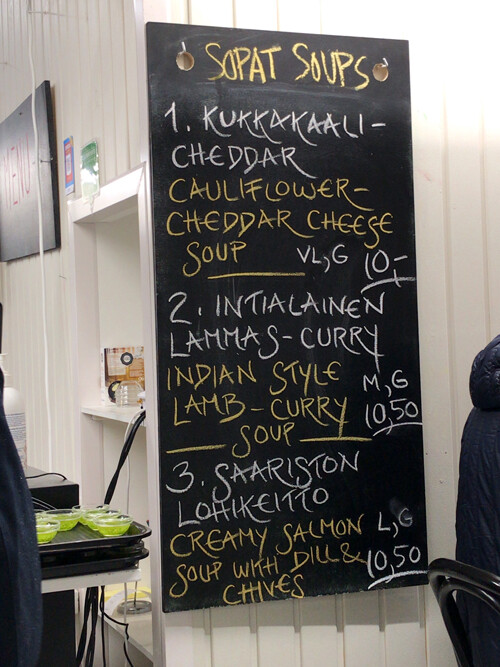 MENU
SOPAT SOUPS
1. KUKKAKAALI-
CHEDDAR
CAULIFLOWER-
CHEDDAR CHEESE
SOUP VL,G 10,-
2. INTIALAINEN
LAMMAS-CURRY
INDIAN STYLE M,G
LAMB-CURRY 10,50
SOUP
3. SAARISTON
LOHIKEITTO
CREAMY SALMON L,G
SOUP WITH DILL & 10,50
CHIVES